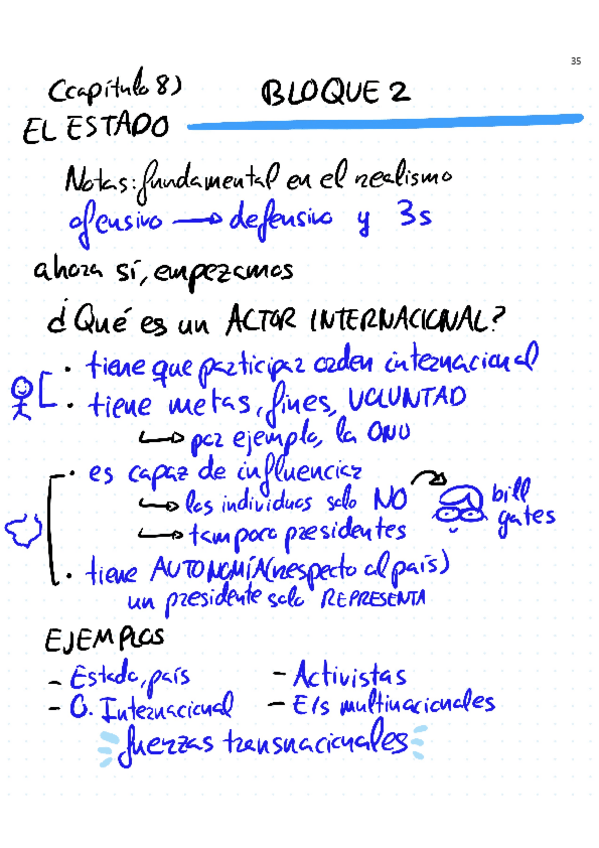 35
(capítulo 8) BLOQUE 2
EL ESTADO
Notas: fundamental en el realismo
ofensivo → defensivo y 3s
ahora sí, empezamos
¿Qué es un ACTOR INTERNACIONAL?
· tiene que participar orden internacional
· tiene metas, fines, VOLUNTAD
↳ por ejemplo, la ONU
· es capaz de influenciar
↳ los individuos solo NO
bill
gates
↳ tampoco presidentes
· tiene AUTONOMÍA (respecto al país)
un presidente solo REPRESENTA
EJEMPLOS
- Estado, país - Activistas
- O. Internacional - E/s multinacionales
fuerzas transnacionales